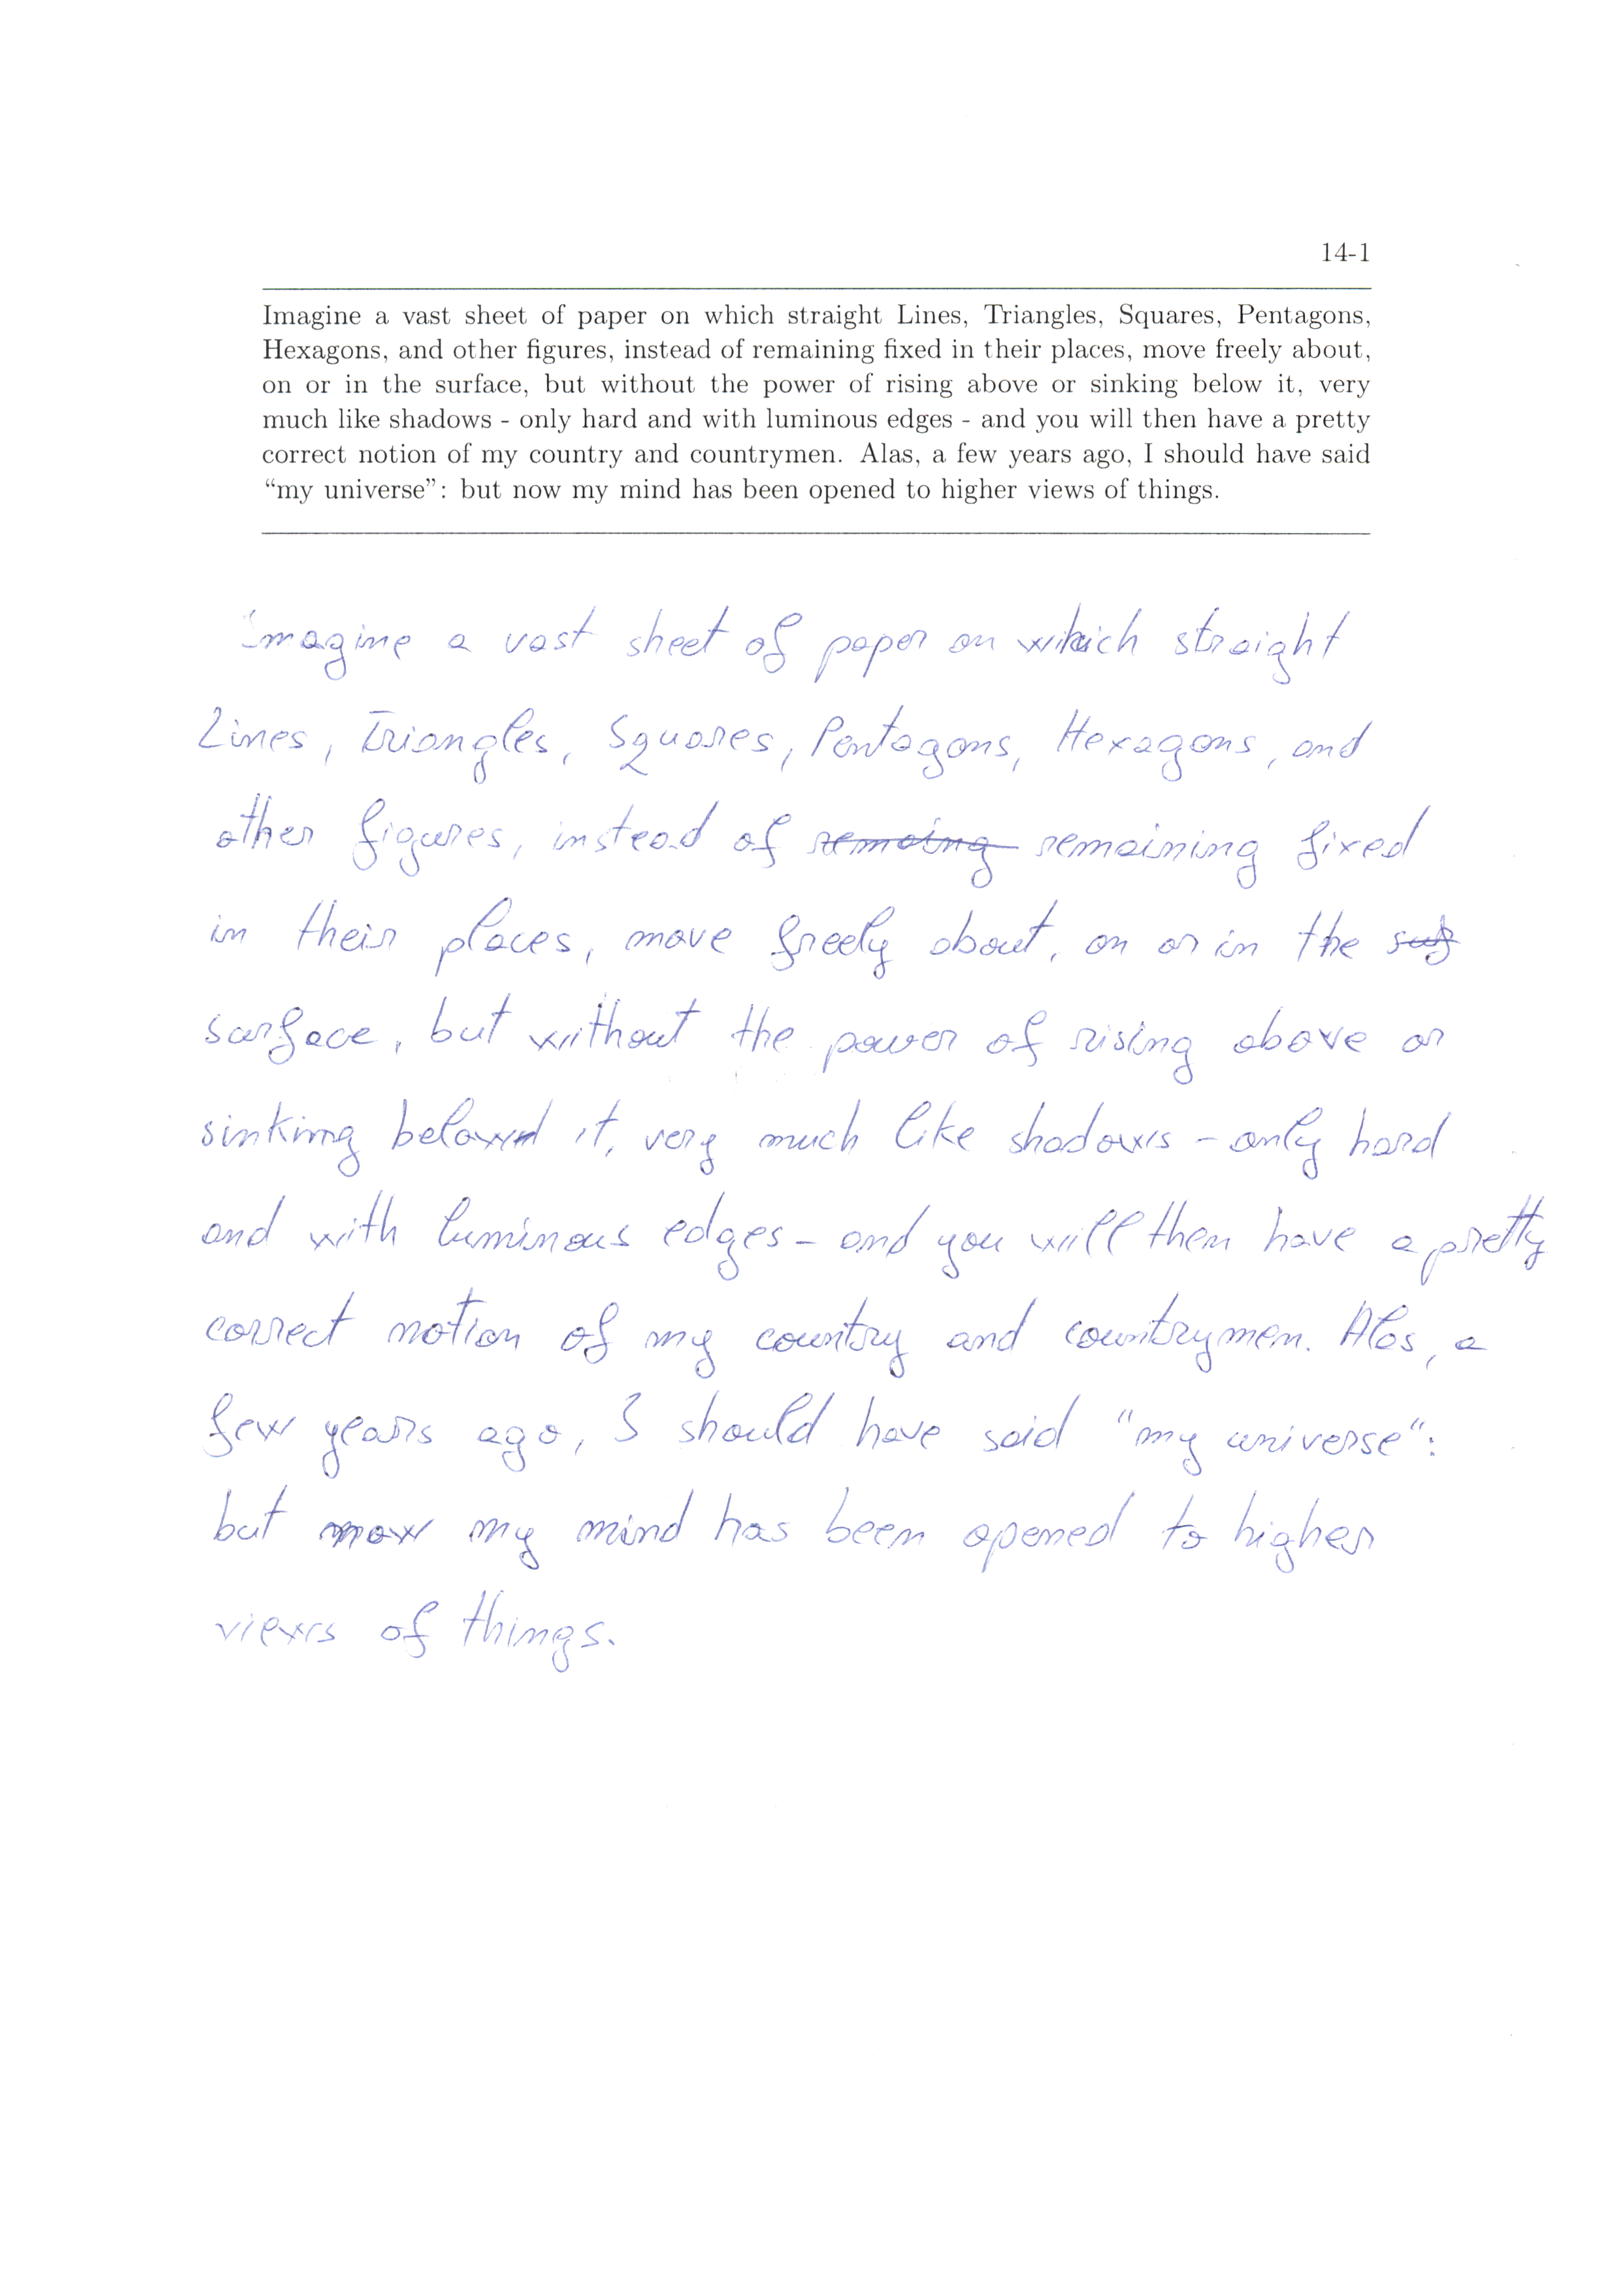 14-1
Imagine a vast sheet of paper on which straight Lines, Triangles, Squares, Pentagons,
Hexagons, and other figures, instead of remaining fixed in their places, move freely about,
on or in the surface, but without the power of rising above or sinking below it, very
much like shadows - only hard and with luminous edges - and you will then have a pretty
correct notion of my country and countrymen. Alas, a few years ago, I should have said
“my universe”: but now my mind has been opened to higher views of things.
Imagine a vast sheet of paper on which straight
Lines, Triangles, Squares, Pentagons, Hexagons, and
other figures, instead of remaing remaining fixed
in their places, move freely about, on or in the suf
surface, but without the power of rising above or
sinking below it, very much like shadows - only hard
and with luminous edges - and you will then have a pretty
correct notion of my country and countrymen. Alas, a
few years ago, I should have said “my universe“:
but now my mind has been opened to higher
views of things.